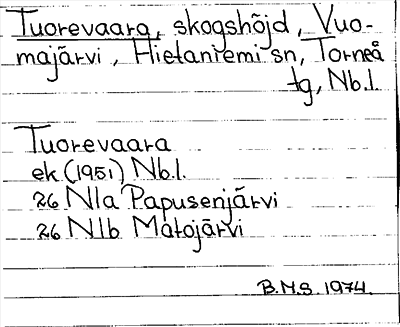 Tuorevaara, skogshöjd, Vuo-
majärvi, Hietaniemi sn, Torneå
tg, Nb.l.
Tuorevaara
ek (1951) Nb.l.
26 Nla Papusenjärvi
26 Nlb Matojärvi
B.M.S. 1974.